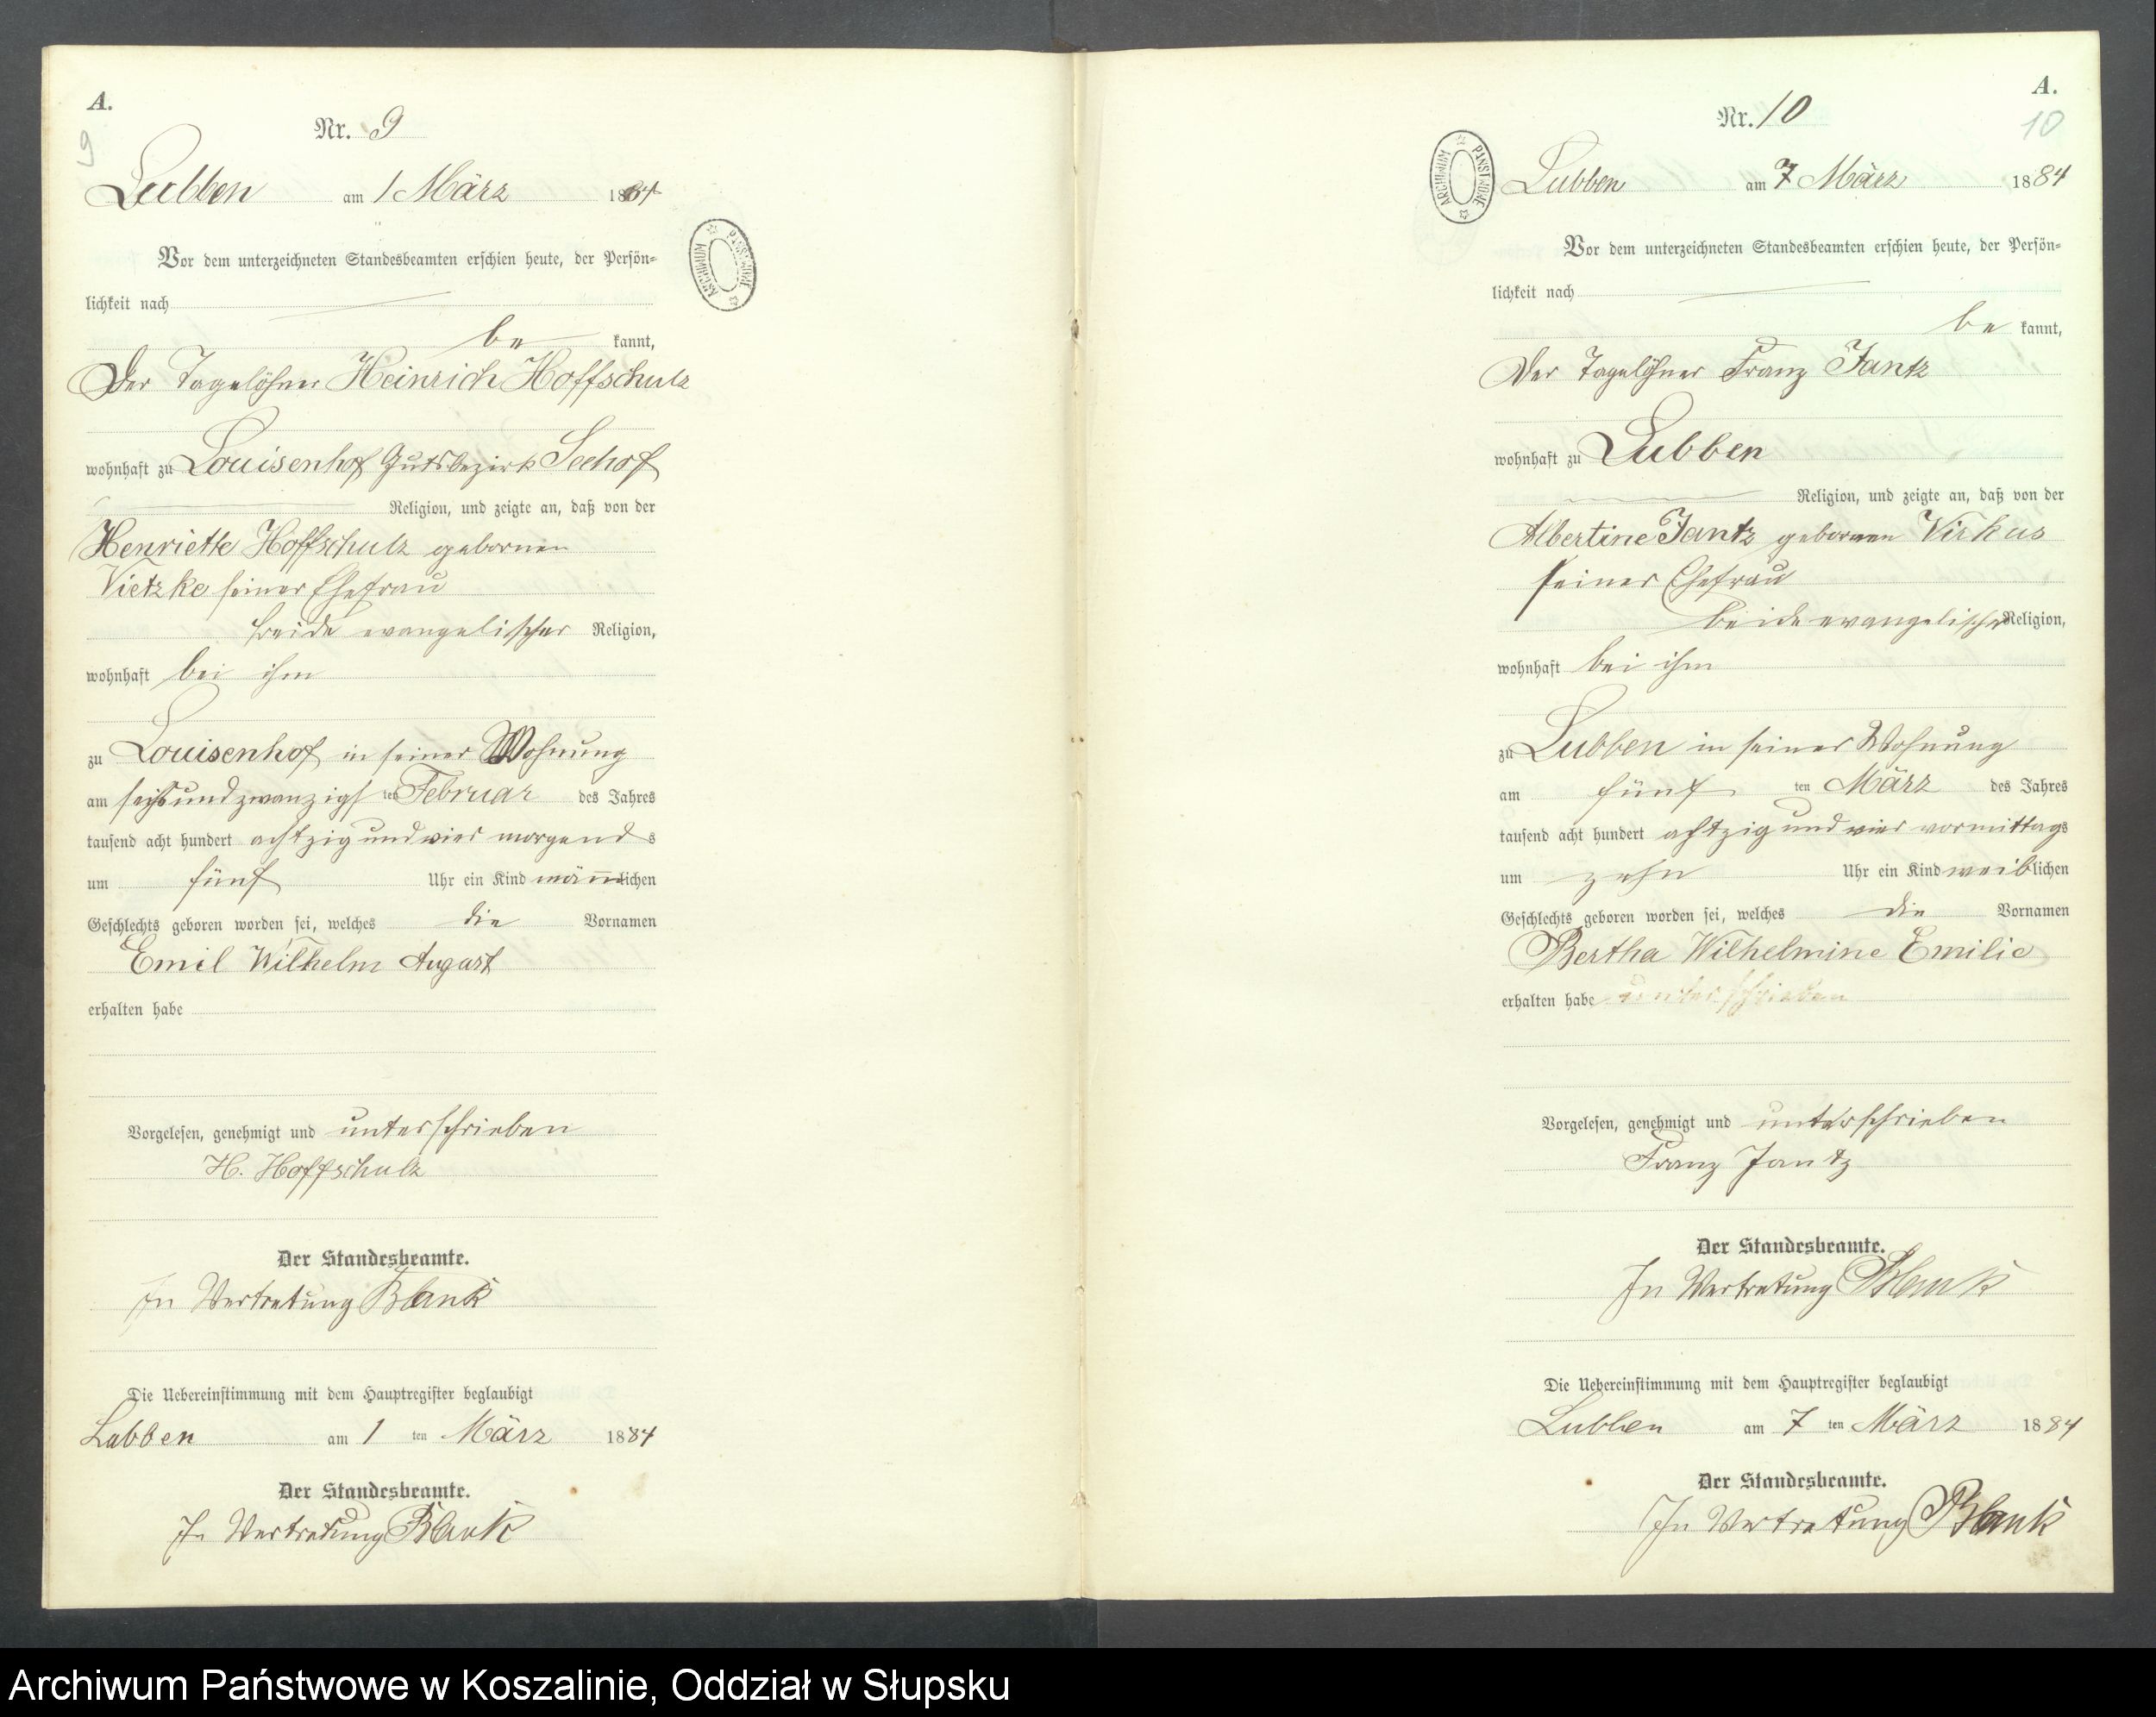 A.
9
Nr. 9
Lubben am 1 März 1884
Vor dem unterzeichneten Standesbeamten erschien heute, der Persön-
lichkeit nach
be kannt,
Der Tagelöhner Heinrich Hoffschulz
wohnhaft zu Louisenhof Gutsbezirk Seehof
Religion, und zeigte an, daß von der
Henriette Hoffschulz gebornen
Vietzke seiner Ehefrau
beide evangelischer Religion,
wohnhaft bei ihm
zu Louisenhof in seiner Wohnung
am sechsundzwanzigs ten Februar des Jahres
tausend acht hundert achtzig und vier morgend s
um fünf Uhr ein Kind männlichen
Geschlechts geboren worden sei, welches die Vornamen
Emil Wilhelm August
erhalten habe
Vorgelesen, genehmigt und unterschrieben
H. Hoffschulz
Der Standesbeamte.
In Vertretung Blank
Die Uebereinstimmung mit dem Hauptregister beglaubigt
Lubben am 1 ten März 1884
Der Standesbeamte.
In Vertretung Blank
ARCHIWUM PAŃSTWOWE
A.
10
Nr. 10
Lubben am 7 März 1884
Vor dem unterzeichneten Standesbeamten erschien heute, der Persön-
lichkeit nach
be kannt,
Der Tagelöhner Franz Jantz
wohnhaft zu Lubben
Religion, und zeigte an, daß von der
Albertine Jantz gebornen Virkus
seiner Ehefrau
beide evangelischer Religion,
wohnhaft bei ihm
zu Lubben in seiner Wohnung
am fünf ten März des Jahres
tausend acht hundert achtzig und vier vormittags
um zehn Uhr ein Kind weiblichen
Geschlechts geboren worden sei, welches die Vornamen
Bertha Wilhelmine Emilie
erhalten habe unterschrieben
Vorgelesen, genehmigt und unterschrieben
Franz Jantz
Der Standesbeamte.
In Vertretung Blank
Die Uebereinstimmung mit dem Hauptregister beglaubigt
Lubben am 7 ten März 1884
Der Standesbeamte.
In Vertretung Blank
ARCHIWUM PAŃSTWOWE
Archiwum Państwowe w Koszalinie, Oddział w Słupsku